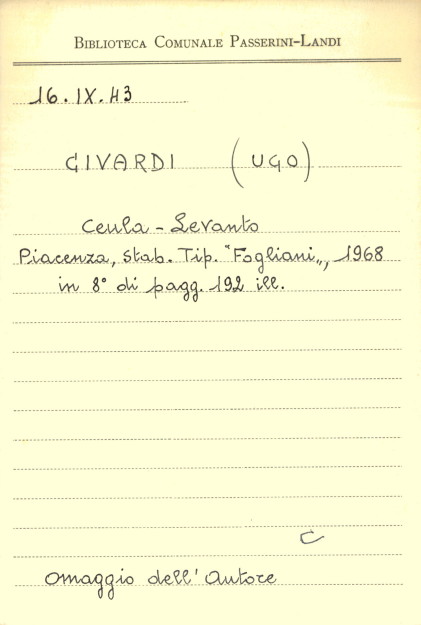 BIBLIOTECA COMUNALE PASSERINI-LANDI
16.IX.43
GIVARDI (UGO)
Ceula - Levanto
Piacenza, Stab. Tip. "Fogliani„, 1968
in 8° di pagg. 192 ill.
C
Omaggio dell'Autore